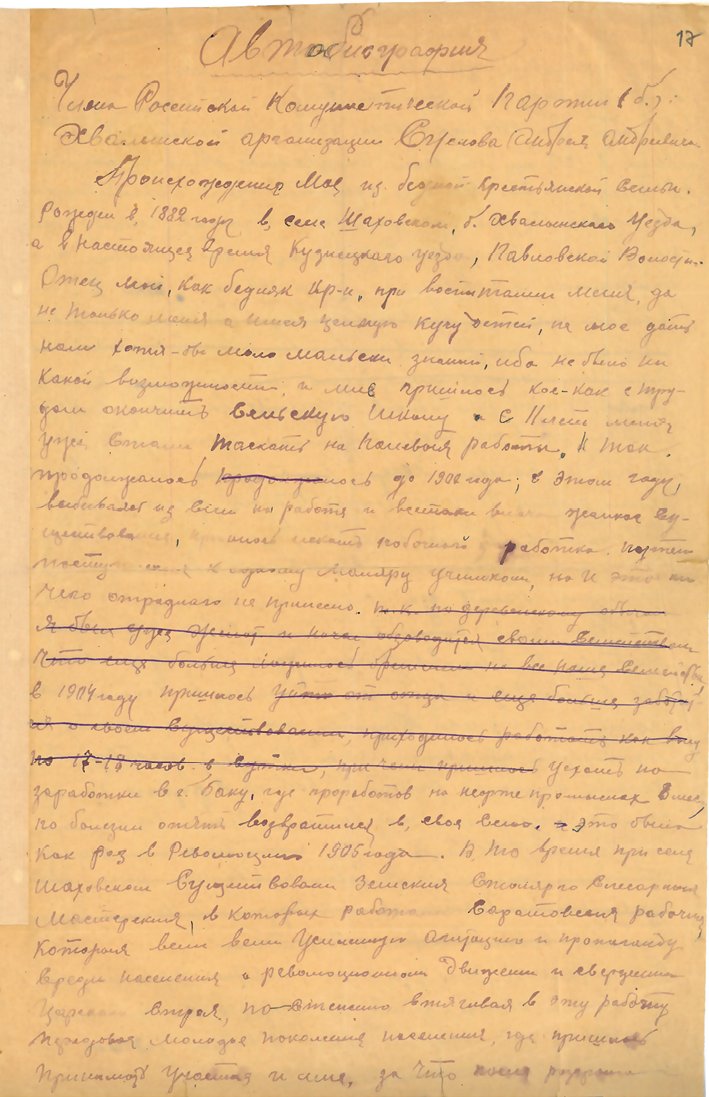 17
Автобиография
Члена Российской Комунистической Партии (б.):
Хвалынской организации Суслова Андрея Андреевича
Происхождения Мое из бедной крестьянской семьи.
рожден в 1882 году в селе Шаховском, б. Хвалынского уезда,
а в настоящее время Кузнецкого уезда, Павловской Волости.
Отец мой, как бедняк кр-н, при воспитании меня, да
не только меня а имея целую кучу детей, не мог дать
нам хотя-бы мало мальски знаний, ибо не было ни
какой возможности, и мне пришлось кое-как с тру-
дом окончить Сельскую школу а с 11 лет меня
уже стали таскать на полевыя работы. И так
продолжалось продолжалось до 1902 года; в этом году,
выбиваясь из сил на работе и всетаки жалкое су-
ществование, пришлось искать побочного заработка.
к одному маляру учеником, но и это ни
чего отраднаго не принесло. т.к. по деревенскому обычаю
я был уже женат и начал обзаводится своим Семейством
что еще больше на все наше Семейство
в 1904 году пришлось уйти от отца и еще больше
о своем существовании, приходилось работать как
по 17-18 часов в сутки, при чем пришлось уехать на
заработки в г. Баку, где проработов на нефте промыслах
по болезни опять возвратился в свое село. это было
как раз в Революцию 1905 года. В то время при селе
Шаховском Существовали Земския Столярно Слесарныя
Мастерския, в которых работали Саратовския рабочия,
которыя вели вели усиленную агитацию и пропаганду
среди населения о революционном движении и свержении
Царского строя, постепенно втягивая в эту работу
передовая молодое поколение населения, где пришлось
принимать участия и мне, за что после